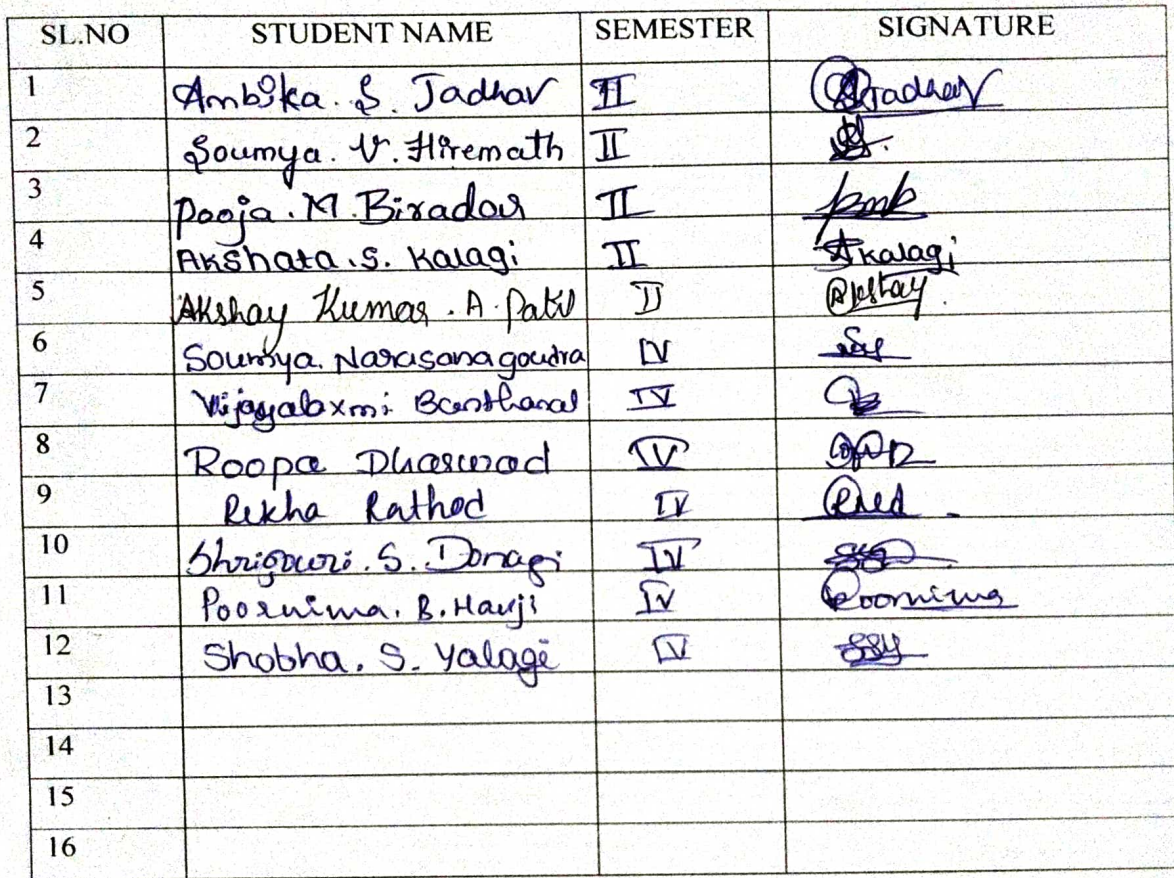 SL.NO STUDENT NAME SEMESTER SIGNATURE
1 Ambika. S. Jadhav II Jadhav
2 Soumya. V. Hiremath II
3 Pooja. M. Biradar II pmb
4 Akshata. S. Kalagi II Akalagi
5 Akshay Kumar. A. Patil II Akshay
6 Soumya. Narasanagoudra IV
7 Vijayalaxmi IV
8 Roopa Dharwad IV
9 Rekha Rathod IV
10 Shrigouri. S. Donagi IV
11 Poornima. B. Hauji IV Poornima
12 Shobha. S. Yalagi IV SSY
13
14
15
16